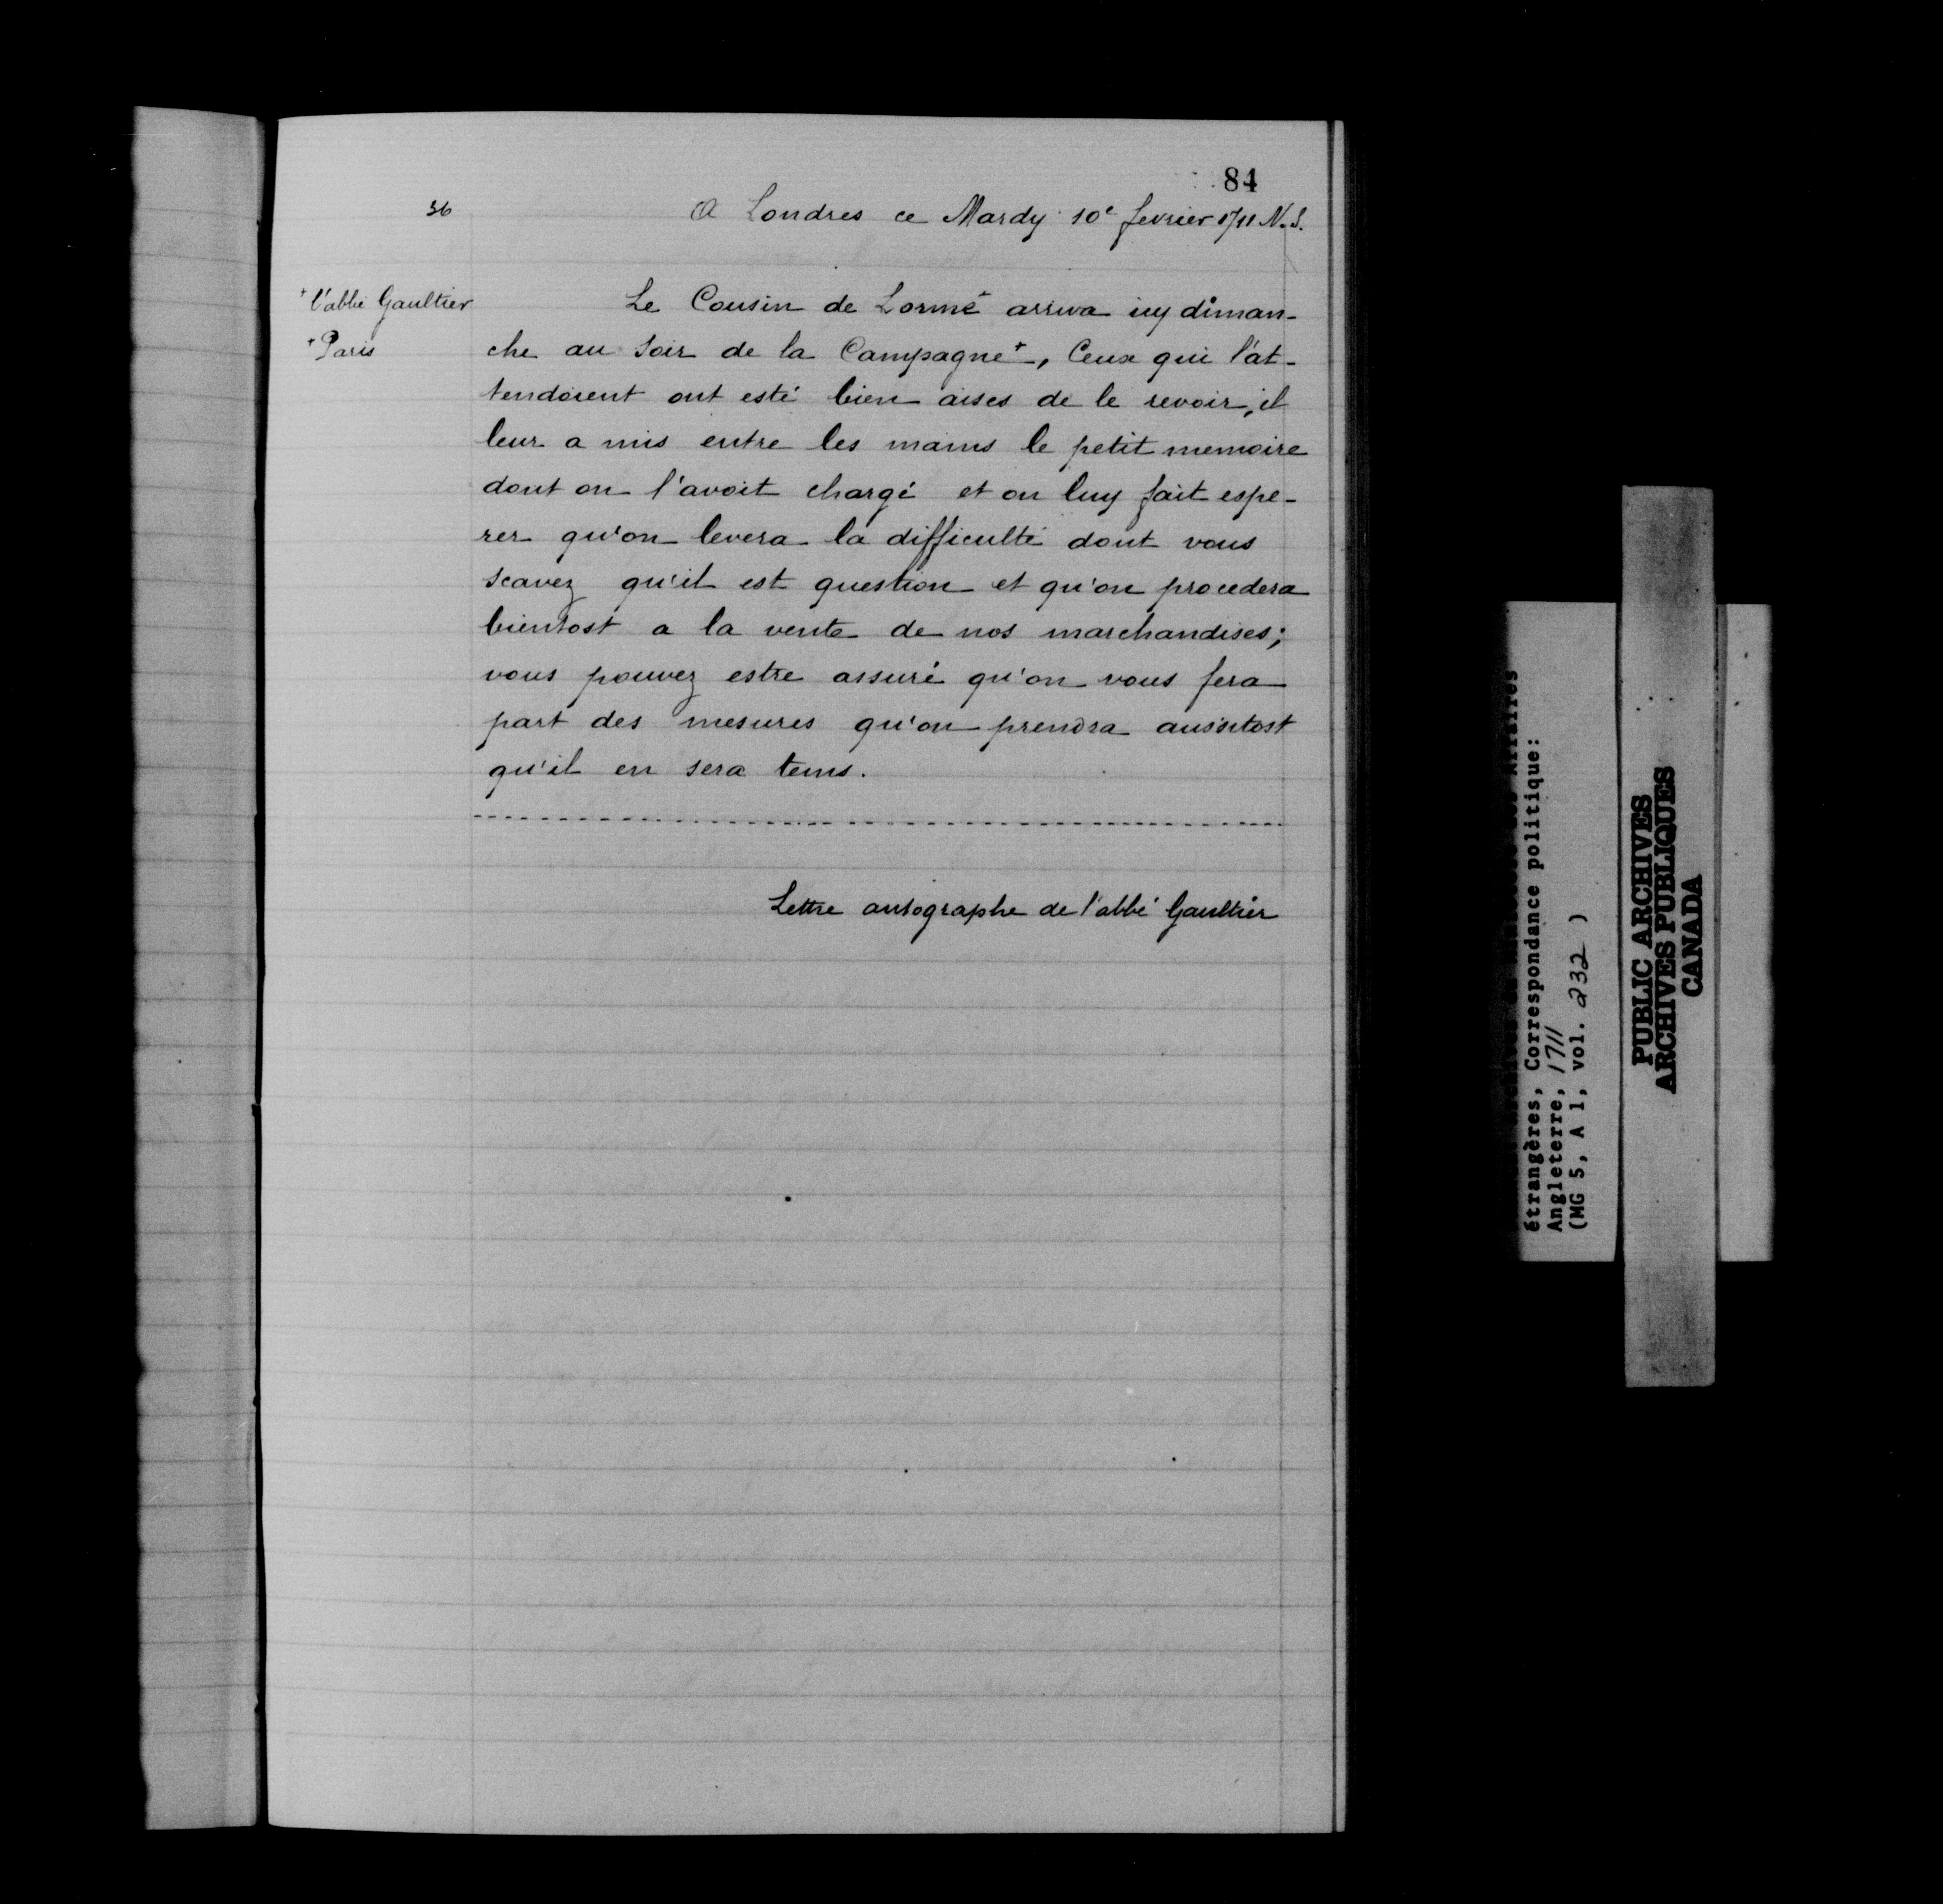 84
36
A Londres ce Mardy 10e fevrier 1711 N.S.
+ l'abbé Gaultier
+ Paris
Le Cousin de Lorme+ arriva icy diman-
che au soir de la Campagne+, Ceux qui l'at-
tendoient ont esté bien aises de le revoir, il
leur a mis entre les mains le petit memoire
dont on l'avoit chargé et on luy fait espe-
rer qu'on levera la difficulté dont vous
scavez qu'il est question et qu'on procedera
bientost a la vente de nos marchandises;
vous pouvez estre assuré qu'on vous fera
part des mesures qu'on prendra aussitost
qu'il en sera tems.
Lettre autographe de l'abbé Gaultier
Affaires
étrangères, Correspondance politique:
Angleterre, 1711
(MG 5, A 1, vol. 232 )
PUBLIC ARCHIVES
ARCHIVES PUBLIQUES
CANADA